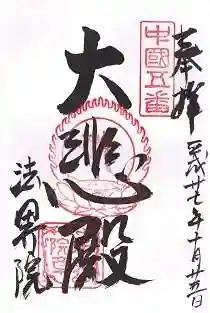 奉拝
平成廿七年十月廿五日
中國五番
大悲殿
法界院